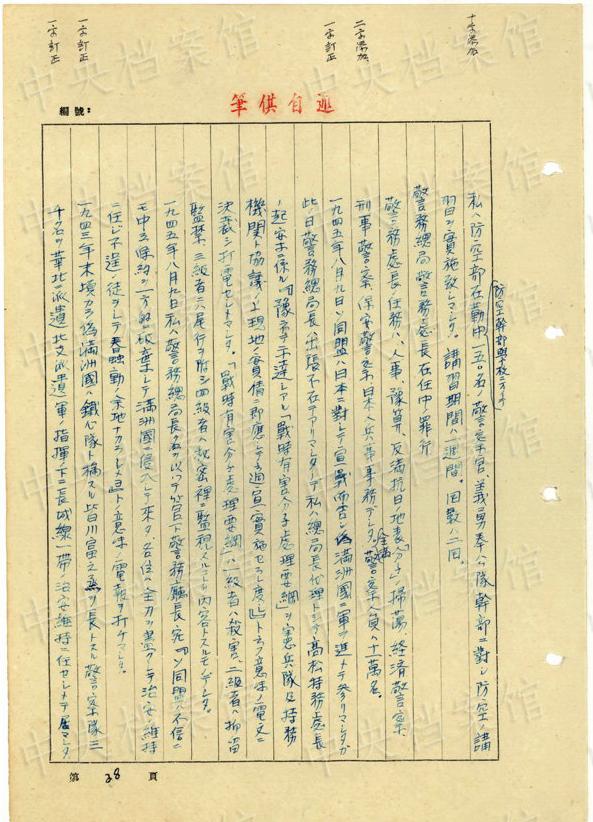 十字添加
二字添加
一字訂正
一字訂正
一字訂正
筆供自述
編號:
防空幹部學校ニ万テ
私ハ防空部在勤中一五〇名ノ警察官、義勇奉公隊幹部ニ對シ防空ノ講
習ヲ實施致シマシタ。講習期間ハ一週間。回數ハ二回。
警務總局警務處長在任中ノ罪行
警務處長ノ任務ハ、人事、豫算、反満抗日地表分子ノ掃蕩、経済警察
刑事警察、保安警察、日本人兵事事務デシタ。全満警察人員ハ十萬名。
一九四五年八月九日ソ同盟ハ日本ニ對シテ宣戦布告シ偽満洲國ニ軍ヲ進メテ参リマシタガ
此日警務總局長ハ出張不在デアリマシタノデ私ハ總局長代理トシテ高松特務處長
ノ起安ニ係ル「豫テ示達シアル「戰時有害分子處理要綱」ヲ憲兵隊及特務
機関ト協議ノ上現地ノ實情ニ即應スル適宜實施セラレ度」トノ意味ノ電文ニ
決裁シ打電セシメマシタ。「戰時有害分子處理要綱」ハ一級者ハ殺害、二級者ハ拘留
監禁、三級者ニハ尾行ヲ附シ四級者ハ秘密裡ニ監視スルトノ内容トスルモノデシタ。
一九四五年八月九日私ハ警務總局長ノ名ヲ以テ管下警務廳長宛「ソ同盟ハ不信ニ
モ中立條約ヲ一方的ニ破棄シテ満洲國ニ侵入シテ来タ、各位ハ全力ヲ盡シテ治安ノ維持
ニ任ジ不逞ノ徒ヲシテ蠢動ノ余地ナカラシメヨ」トノ意味ノ電報ヲ打ケマシタ。
一九四三年末頃カラ偽満洲國ハ鐵心隊ト稱スル皆川富之丞ヲ長トスル警察隊三
千名ヲ華北ニ派遣、北支派遣軍ノ指揮下ニ長城線一帶ノ治安維持ニ任セシメテ居マシタ
第 28 頁
中央档案馆